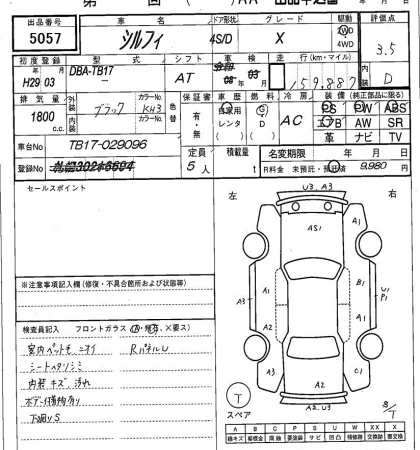 出品番号 車名 ドア形状 グレード 駆動 評価点
5057 シルフィ 4S/D X 2WD 4WD 3.5
初度登録 型式 シフト 車検 走行(km・マイル) 内装
H29年03月 DBA-TB17 AT 年 月 159,887 D
排気量 外装 カラーNo. 色替 保証書 車歴 燃料 冷房 装備(純正部品に限る)
1800 c.c. ブラック KH3 有・無 自家用 レンタ G D AC PS PW ABS
エアB AW SR
革 ナビ TV
車台No TB17-029096 定員 5人 積載量 t 名変期限 年 月 日
登録No R料金 未預託・預託 9,980円
セールスポイント
左 右
U3.A3
AS1
A3 A1 A1 B1 U1 P1
A2 A1
A3 A2 C1
※注意事項記入欄(修復・不具合箇所および状態等)
検査員記入 フロントガラス(A・飛石、×要ス)
室内ペットモ ニオイ RパネルU
シートヘタリシミ
内装キズ 汚れ
ボデー補修有り
下廻りS
T スペア A2.U3 8/T
A B C P S U W X XX
線キズ 板金 腐蝕 要塗装 サビ 凹 補修跡 交換跡 要交換